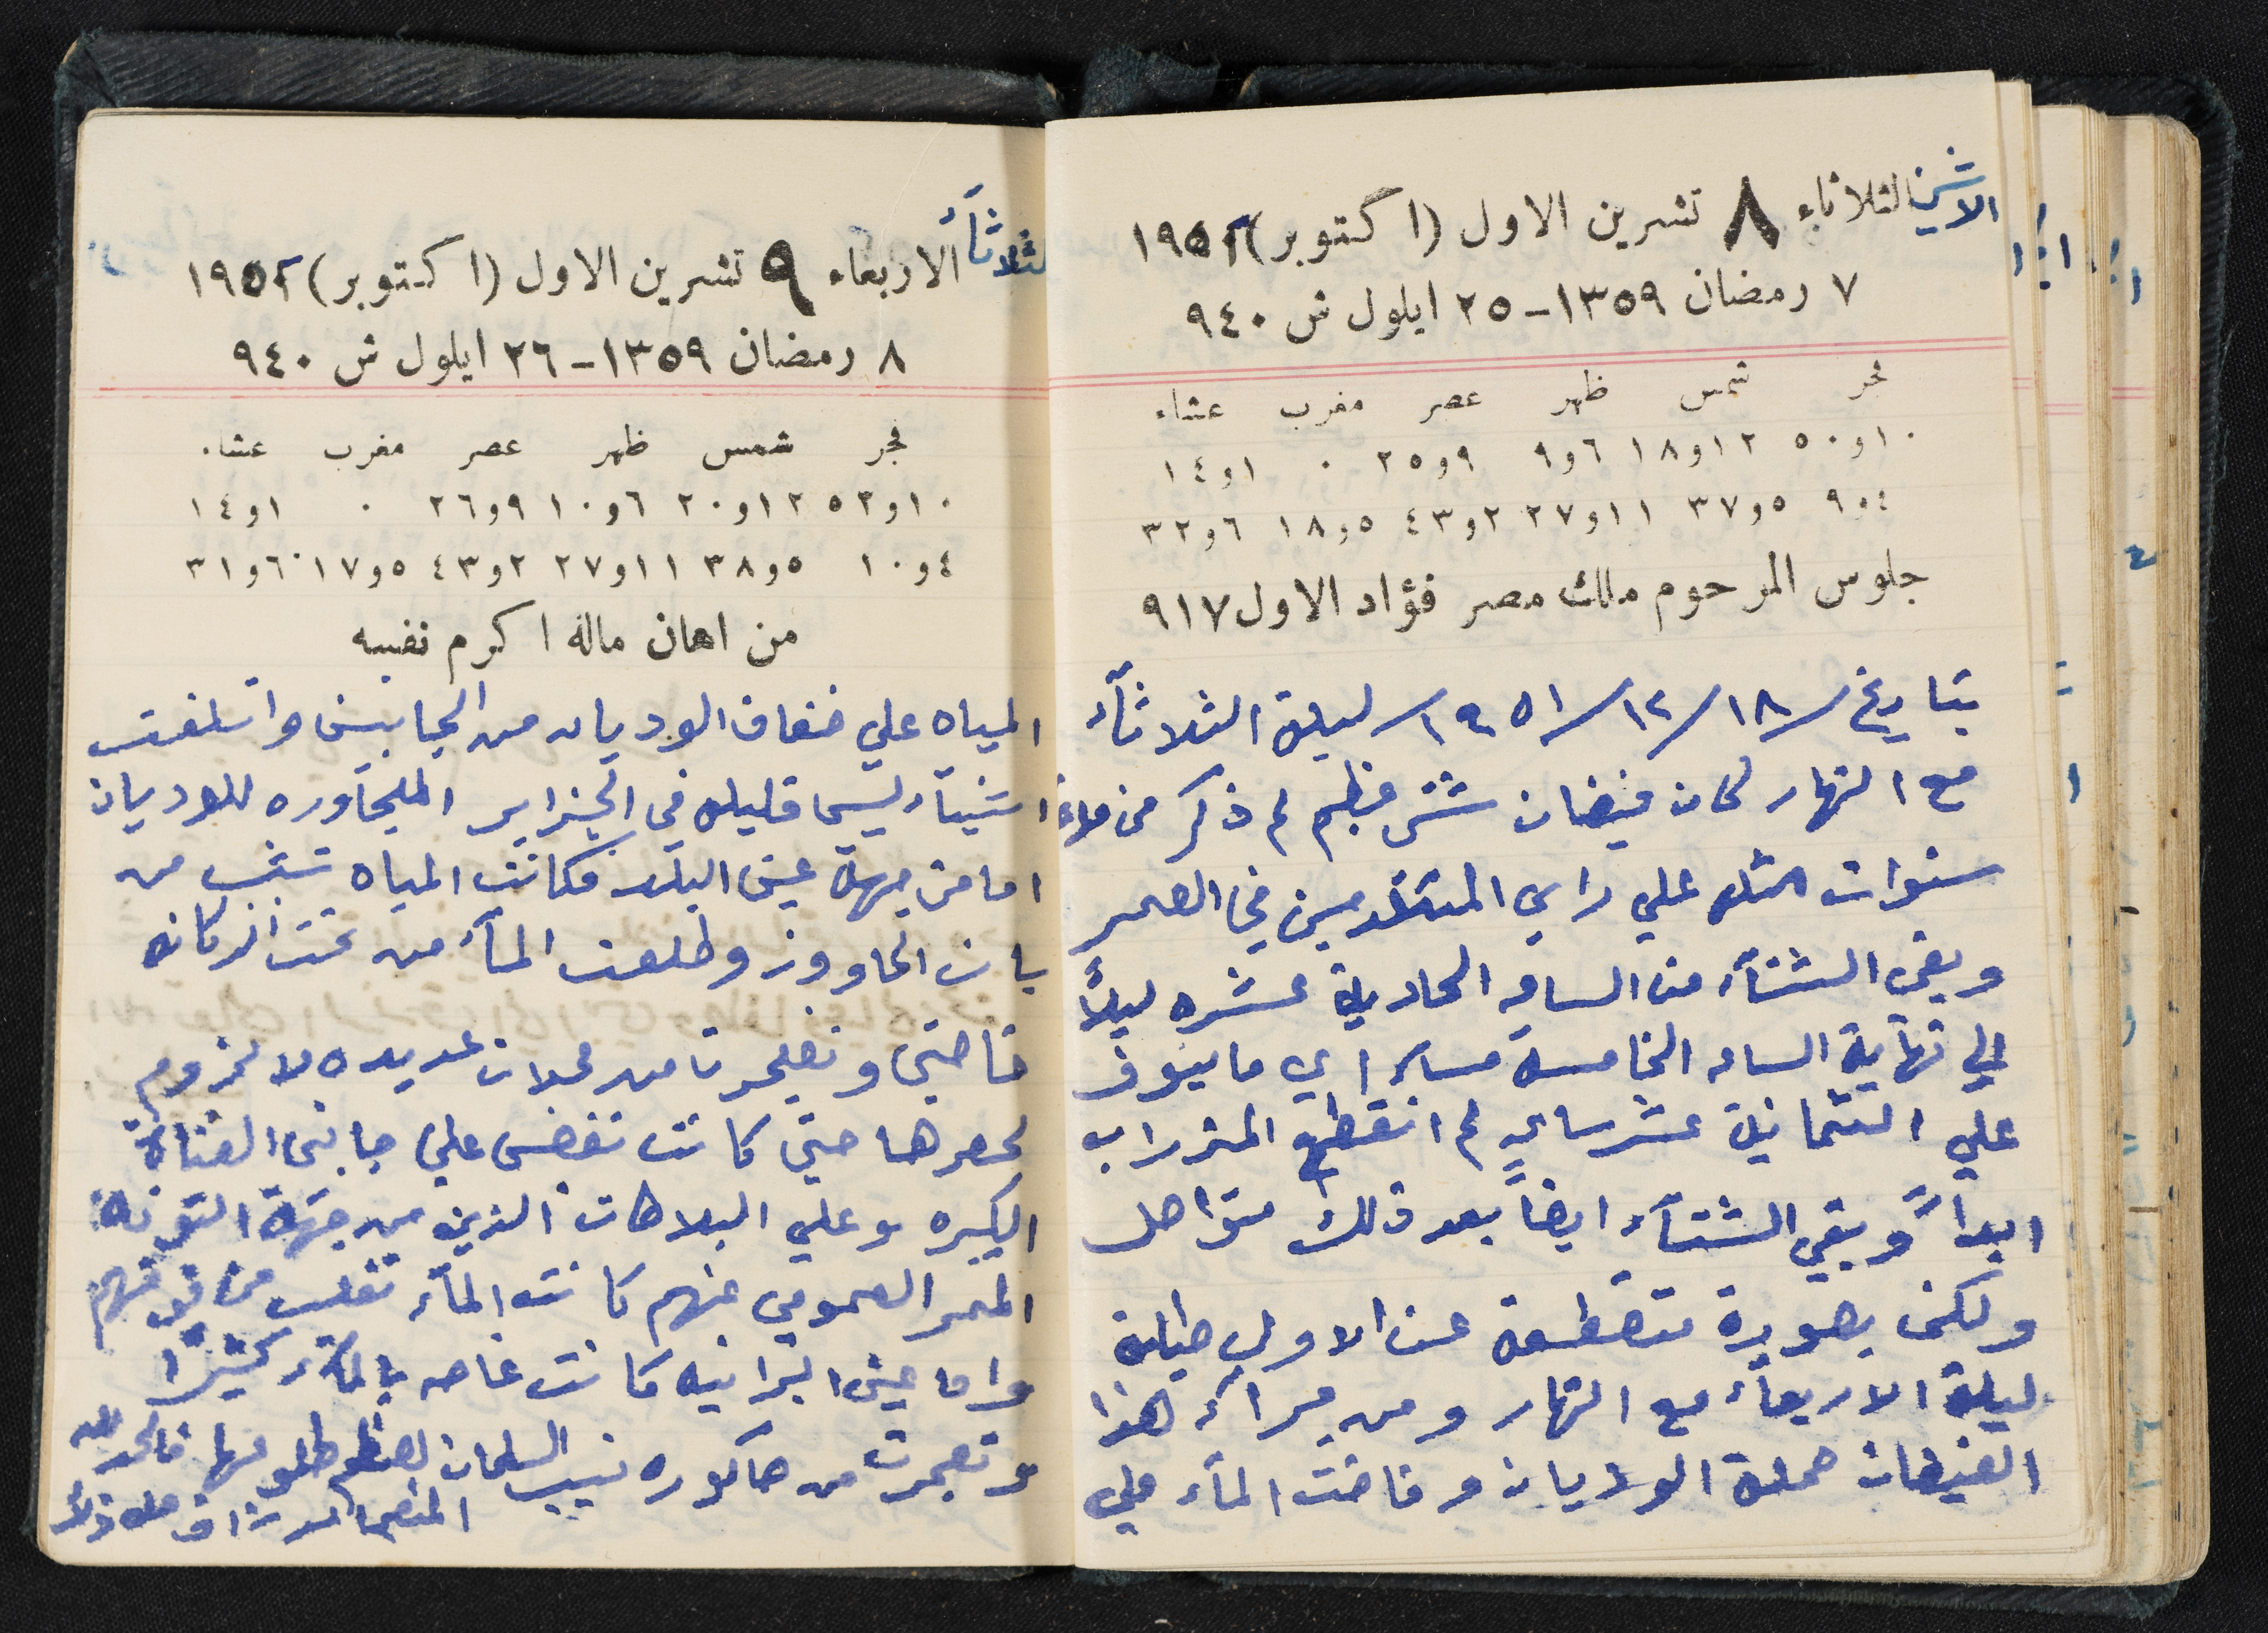 الاثنين الثلاثاء ٨ تشرين الاول (اكتوبر) ١٩٥١
٧ رمضان ١٣٥٩ - ٢٥ ايلول ش ٩٤٠
فجر شمس ظهر عصر مغرب عشاء
١٠و٥٠ ١٢و١٨ ٦و٩ ٩و٢٥ ٠ ١و١٤
٤و٩ ٥و٣٧ ١١و٢٧ ٢و٤٣ ٥و١٨ ٦و٣٢
جلوس المرحوم ملك مصر فؤاد الاول ٩١٧
بتاريخ ١٨/١٢/١٩٥١ ليلة الثلاثآء
مع النهار كان فيضان شتى عظيم لم ذكر من
سنوات مثله علي راي المتقدمين في العمر
وبقى الشتآء من الساعه الحادية عشره ليلاً
الي نهاية الساعه الخامسة مساء اي ما ينوف
علي الثمانية عشر ساعه لم انقطع المزراب
ابداً وبقي الشتآء ايضاً بعد ذلك متواصل
ولكن بصورة متقطعة عن الاول طيلة
ليلة الاربعآء مع النهار ومن جرآء هذا
الفيضان حملة الوديان وفاضت المآء علي
الثلاثآء الاربعاء ٩ تشرين الاول (اكتوبر) ١٩٥١
٨ رمضان ١٣٥٩ - ٢٦ ايلول ش ٩٤٠
فجر شمس ظهر عصر مغرب عشاء
١٠و٥٢ ١٢و٢٠ ٦و١٠ ٩و٢٦ ٠ ١و١٤
٤و١٠ ٥و٣٨ ١١و٢٧ ٢و٤٣ ٥و١٧ ٦و٣١
من اهان ماله اكرم نفسه
المياه علي ضفاف الوديان من الجانبين واتلفت
اشيآء ليس قليله في الجزاير المجاوره للوديان
اما من جهة عين البلد فكانت المياه تشب من
وطلعت المآء من تحت
وتفجرت من محلات عديده لا لزوم
لحصرها حتى كانت تفضى علي جانبى القناة
الكبيره وعلي البلاطات الذين من جهة
الممر العمومي عنهم كانت المآء تقلب من فوقهم
واما عين البرانيه كانت غاصه بالمآء كثيراً
وتفجرت من حاكوره نسيب السلمان لعظم طلوعها فالحمد لله
المنعم علي ذلك